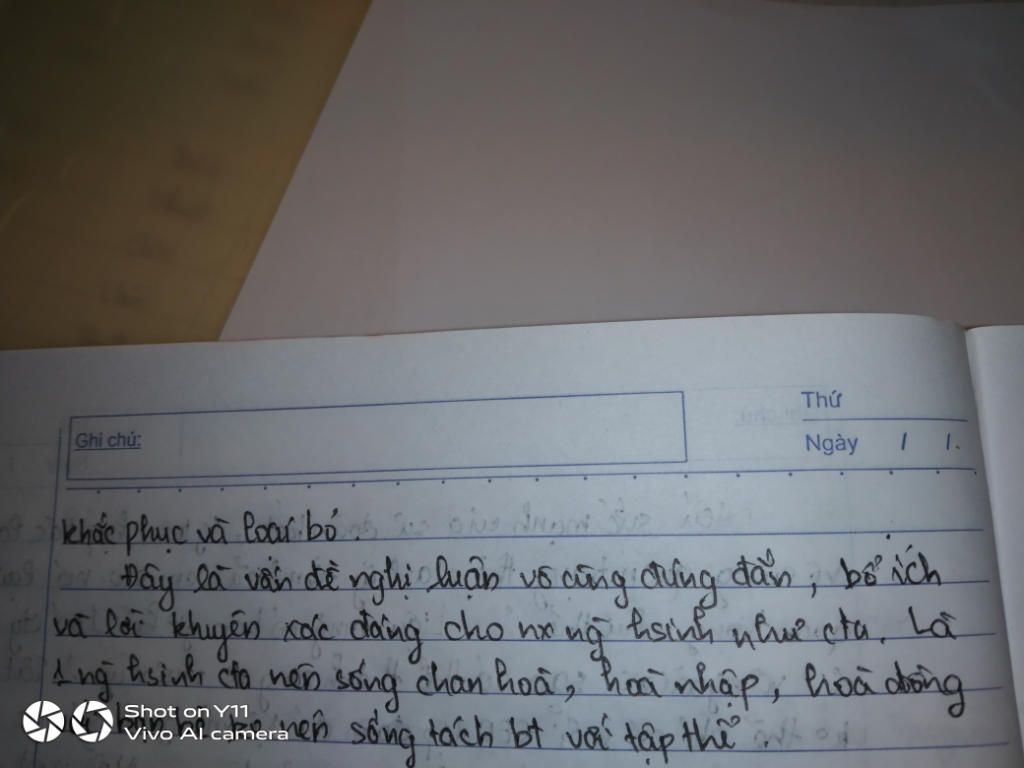 Thứ
Ghi chú:
Ngày / /
khắc phục và loại bỏ.
Đây là vấn đề nghị luận vô cùng đúng đắn, bổ ích
và lời khuyên xác đáng cho nx ng hsinh như cta. Là
1 ng hsinh cta nên sống chan hoà, hoà nhập, hoà đồng
nên sống tách bt với tập thể.
Shot on Y11
Vivo AI camera